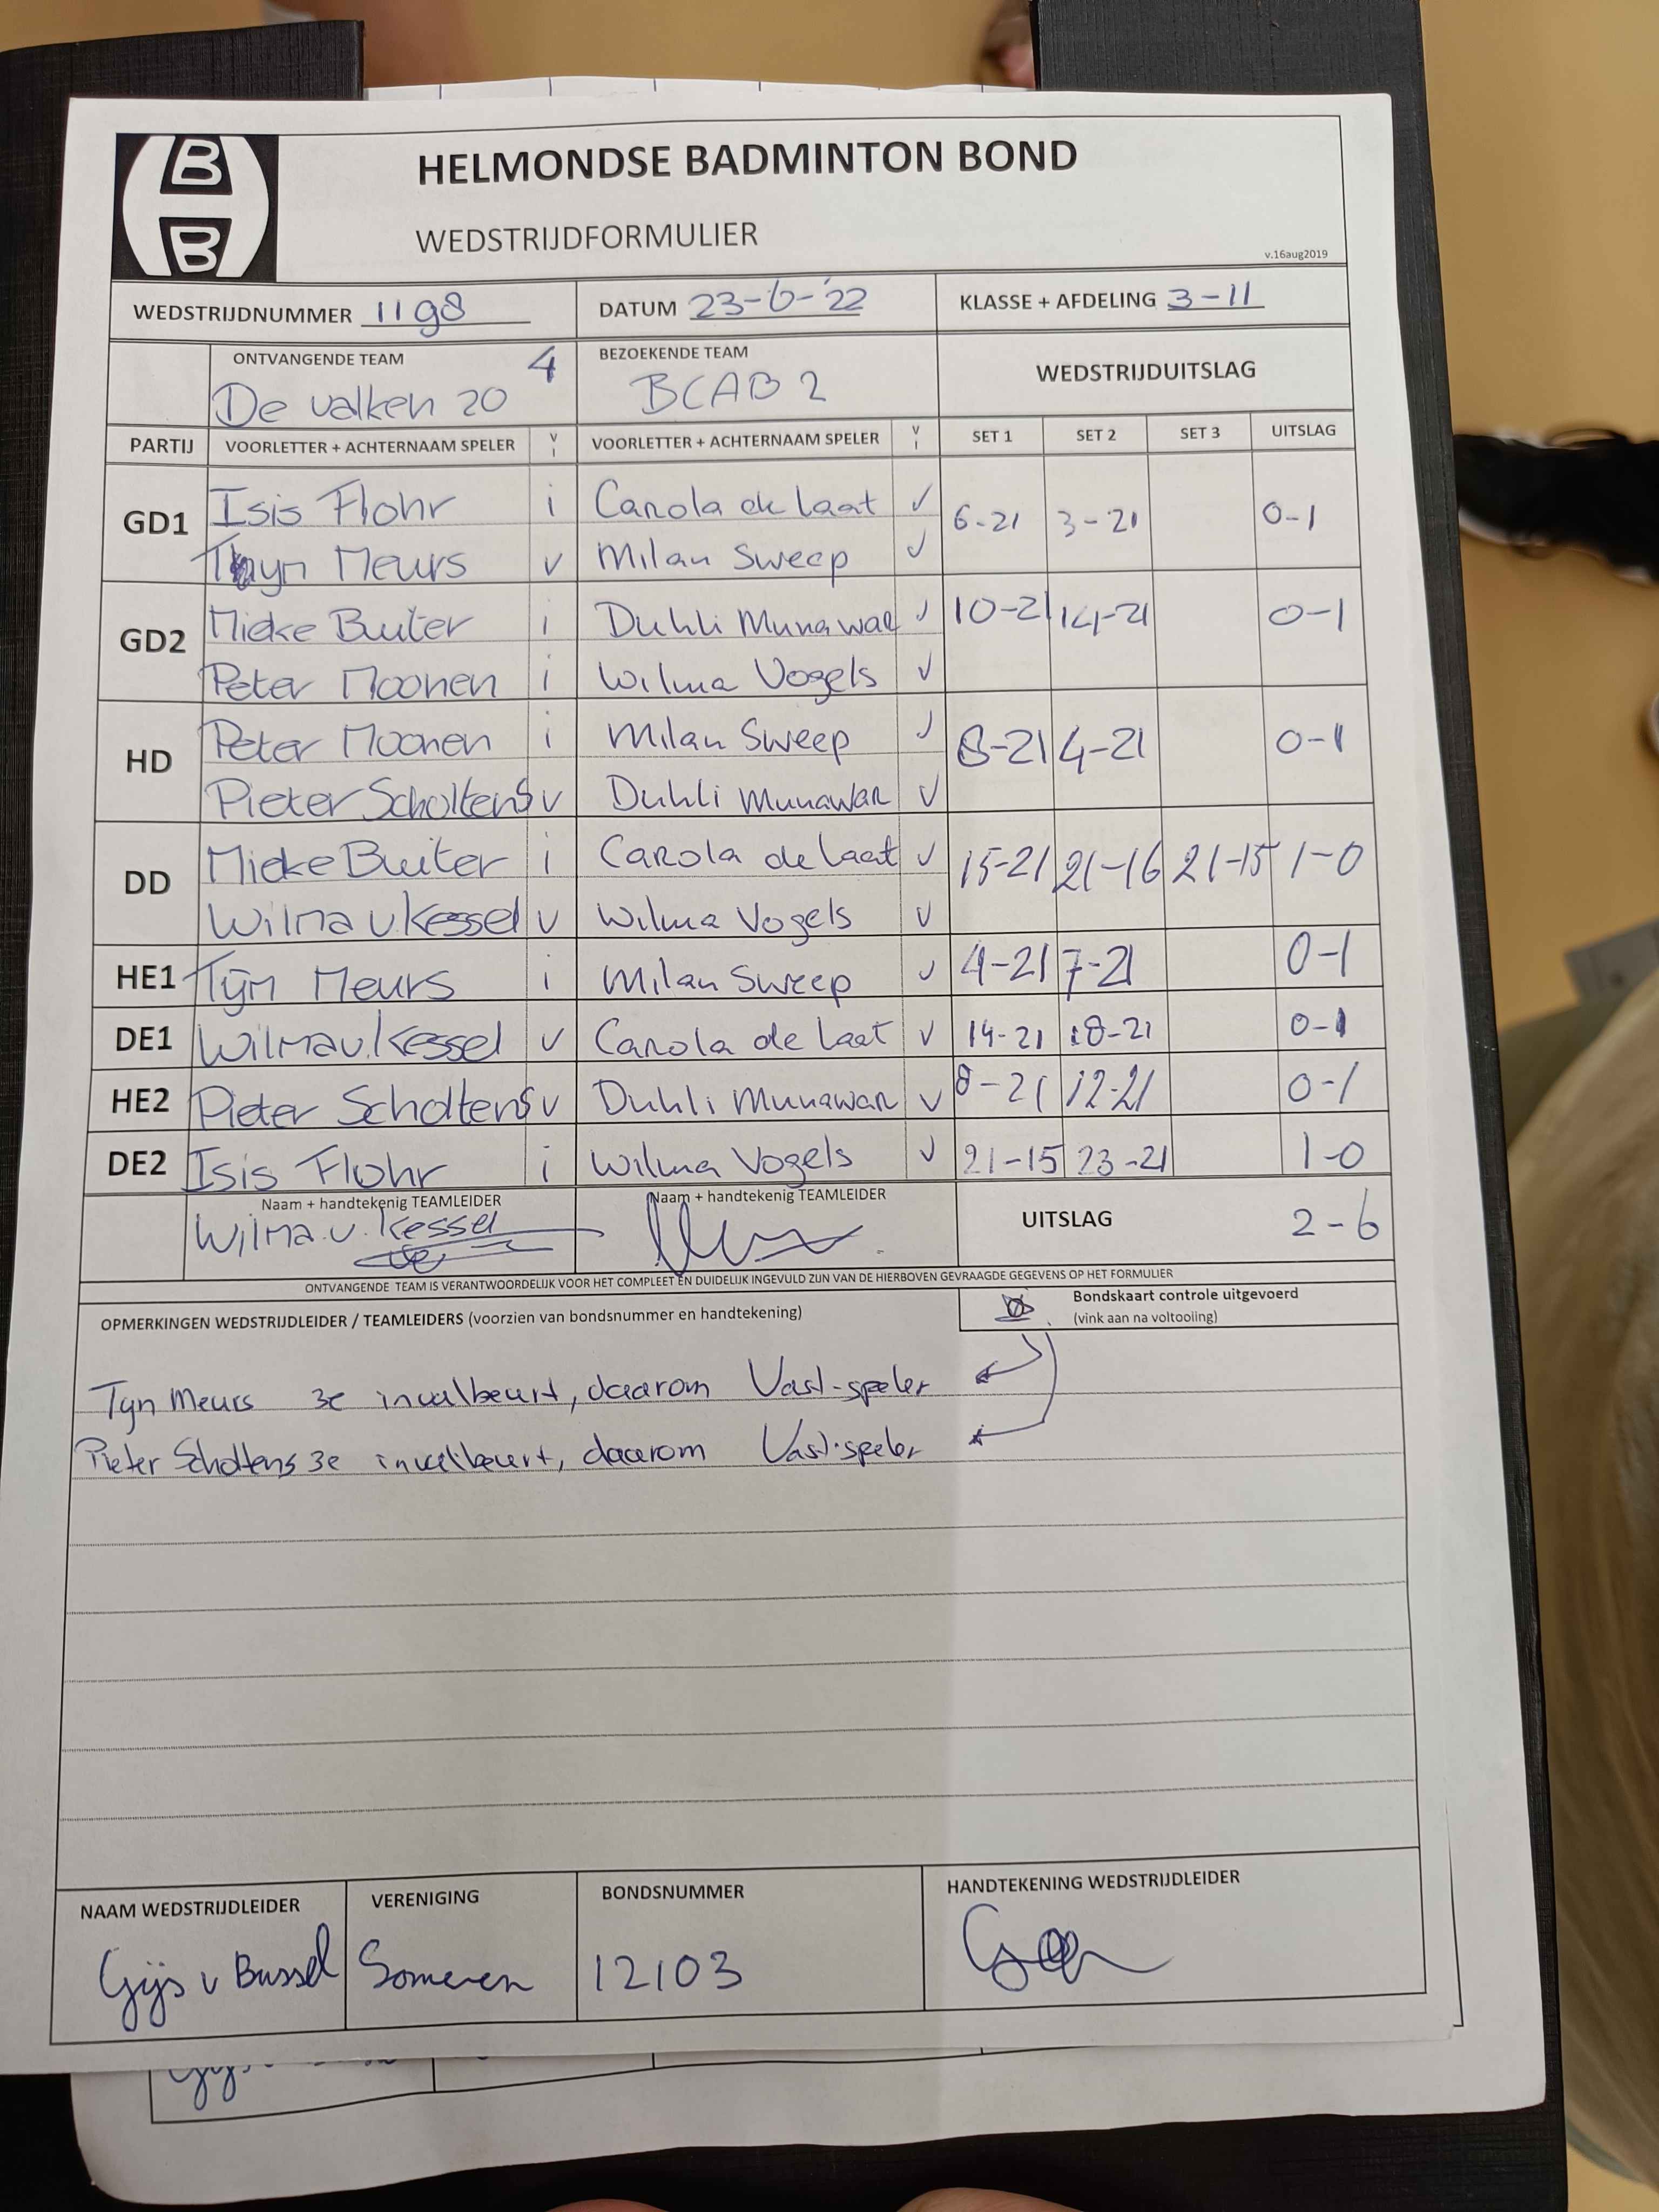 B
B
HELMONDSE BADMINTON BOND
WEDSTRIJDFORMULIER
v.16aug2019
WEDSTRIJDNUMMER 1198 DATUM 23-6-'22 KLASSE + AFDELING 3-11
ONTVANGENDE TEAM 4 BEZOEKENDE TEAM WEDSTRIJDUITSLAG
De valken 20 BCAB 2
PARTIJ VOORLETTER + ACHTERNAAM SPELER V I VOORLETTER + ACHTERNAAM SPELER V I SET 1 SET 2 SET 3 UITSLAG
GD1 Isis Flohr i Carola de Laat v 6-21 3-21 0-1
Meurs v Milan Sweep v
GD2 Mieke Buiter i Duhli Munawar v 10-21 14-21 0-1
Peter Moonen i Wilma Vogels v
HD Peter Moonen i Milan Sweep v 8-21 4-21 0-1
Pieter Scholtens v Duhli Munawar v
DD Mieke Buiter i Carola de Laat v 15-21 21-16 21-15 1-0
Wilma v. Kessel v Wilma Vogels v
HE1 Tijn Meurs i Milan Sweep v 4-21 7-21 0-1
DE1 Wilma v. Kessel v Carola de Laat v 14-21 18-21 0-1
HE2 Pieter Scholtens v Duhli Munawar v 8-21 12-21 0-1
DE2 Isis Flohr i Wilma Vogels v 21-15 23-21 1-0
Naam + handtekenig TEAMLEIDER Naam + handtekenig TEAMLEIDER UITSLAG 2-6
Wilma. v. Kessel
ONTVANGENDE TEAM IS VERANTWOORDELIJK VOOR HET COMPLEET EN DUIDELIJK INGEVULD ZIJN VAN DE HIERBOVEN GEVRAAGDE GEGEVENS OP HET FORMULIER
OPMERKINGEN WEDSTRIJDLEIDER / TEAMLEIDERS (voorzien van bondsnummer en handtekening) Bondskaart controle uitgevoerd
(vink aan na voltooiing)
Tijn Meurs 3e invalbeurt, daarom Vast-speler
Pieter Scholtens 3e invalbeurt, daarom Vast-speler
NAAM WEDSTRIJDLEIDER VERENIGING BONDSNUMMER HANDTEKENING WEDSTRIJDLEIDER
Gijs v Bussel Someren 12103